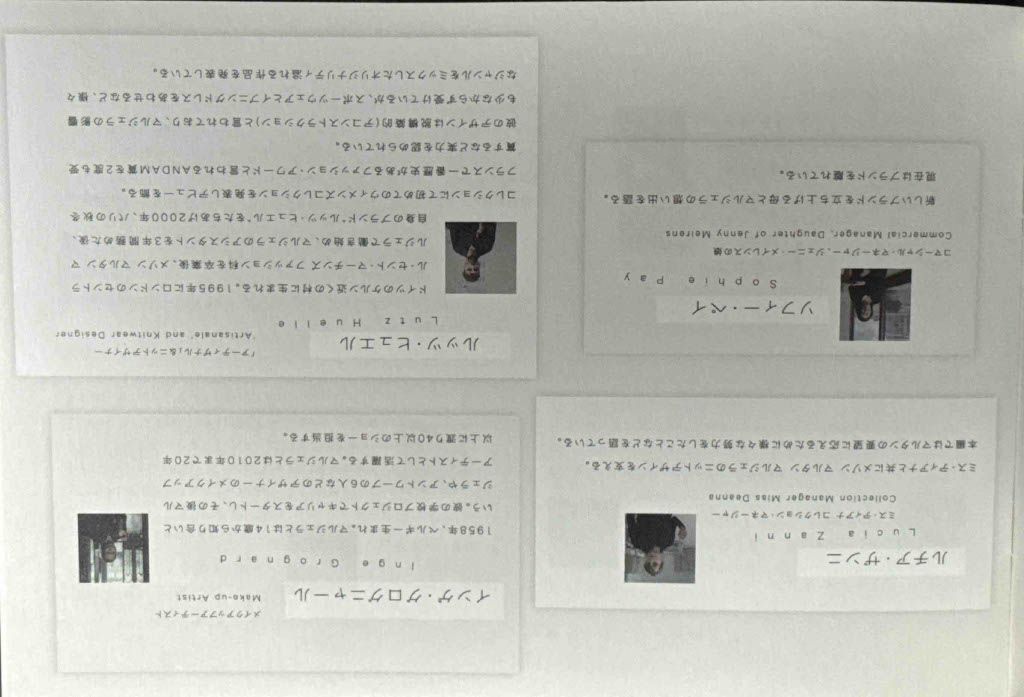 ルチア・ザンニ
Lucia Zanni
ミス・ディアナ コレクション・マネージャー
Collection Manager Miss Deanna
ミス・ディアナと共にメゾン マルタン マルジェラのニットデザインを支える。
本編ではマルタンの要望に応えるために様々な努力をしたことなどを語っている。
インゲ・グログニャール
メイクアップアーティスト
Make-up Artist
Inge Grognard
1958年、ベルギー生まれ。マルジェラとは14歳から知り合いと
いう。彼の学校プロジェクトでキャリアをスタートし、その後マル
ジェラや、アントワープの6人などのデザイナーのメイクアップ
アーティストとして活躍する。マルジェラとは2010年まで20年
以上に渡り40以上のショーを担当する。
ソフィー・ペイ
Sophie Pay
コマーシャル・マネージャー、ジェニー・メイレンスの娘
Commercial Manager, Daughter of Jenny Meirens
新しいブランドを立ち上げる母とマルジェラの想い出を語る。
現在はブランドを離れている。
ルッツ・ヒュエル
「アーティザナル」&ニットデザイナー
'Artisanale' and Knitwear Designer
Lutz Huelle
ドイツのケルン近くの村に生まれる。1995年にロンドンのセントラ
ル・セント・マーチンズ ファッション科を卒業後、メゾン マルタン マ
ルジェラで働き始め、マルジェラのアシスタントを3年間務めた後、
自身のブランド“ルッツ・ヒュエル”をたちあげ2000年、パリの秋冬
コレクションにて初めてのウィメンズコレクションを発表しデビューを飾る。
フランスで一番歴史があるファッション・アワードと言われるANDAM賞を2度も受
賞するなど実力を認められている。
彼のデザインは脱構築的(デコンストラクション)と言われており、マルジェラの影響
も少なからず受けているが、スポーツウェアとイブニングドレスをあわせるなど、様々
なジャンルをミックスしたオリジナリティ溢れる作品を発表している。